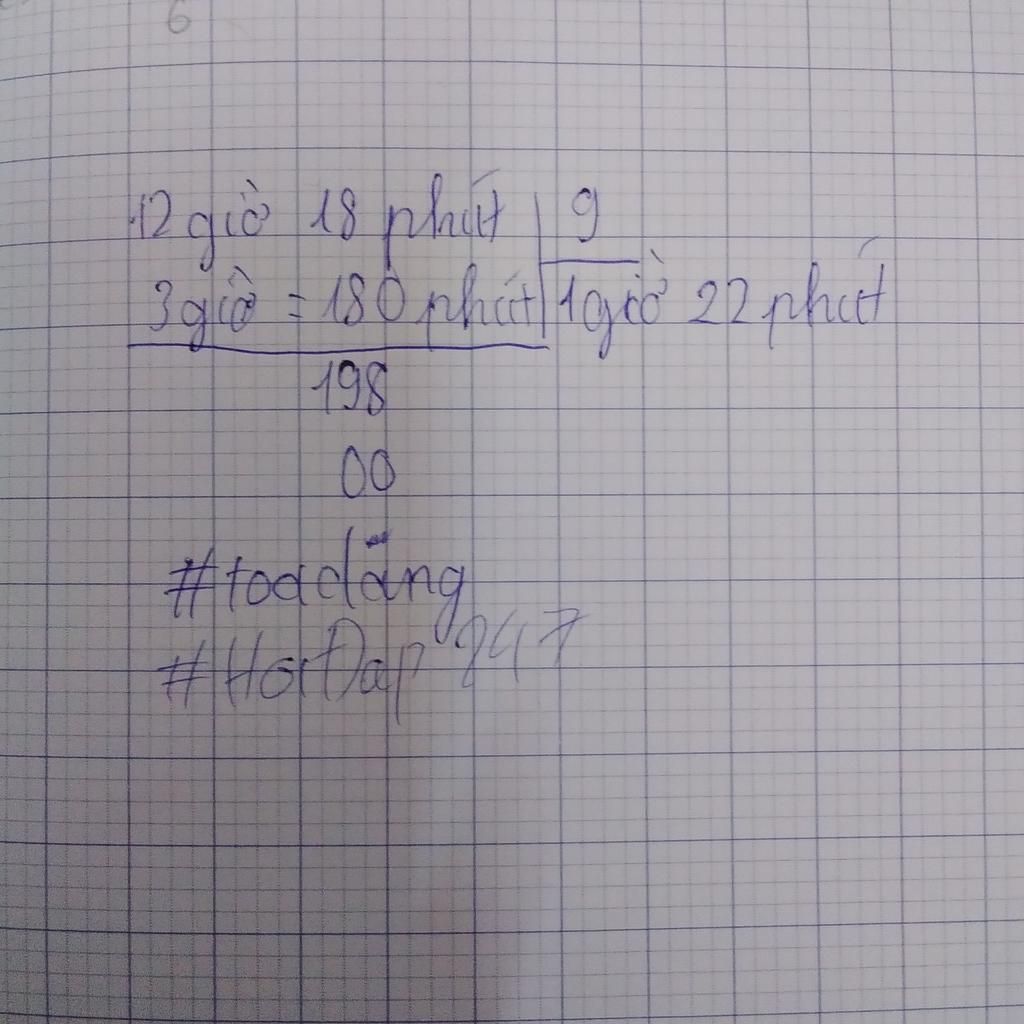 6
12 giờ 18 phút 9
3 giờ = 180 phút 1 giờ 22 phút
198
00
#toadăng
#HoiĐap 247